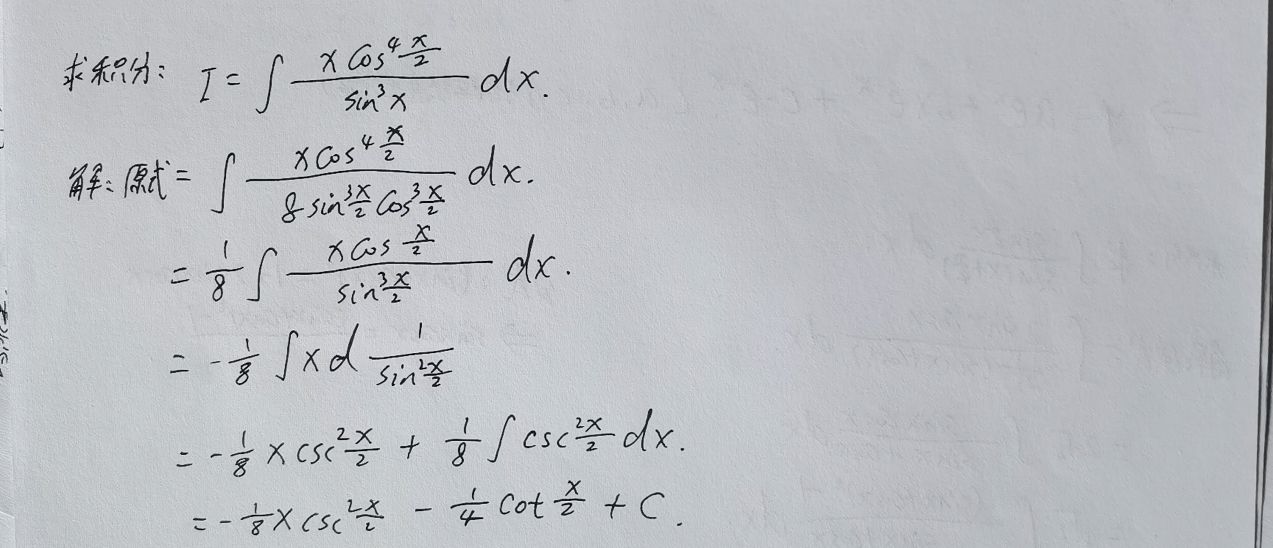 求积分: I = ∫ \frac{x cos^4 \frac{x}{2}}{sin^3 x} dx.
解: 原式 = ∫ \frac{x cos^4 \frac{x}{2}}{8 sin^3 \frac{x}{2} cos^3 \frac{x}{2}} dx.
= \frac{1}{8} ∫ \frac{x cos \frac{x}{2}}{sin^3 \frac{x}{2}} dx.
= -\frac{1}{8} ∫ x d \frac{1}{sin^2 \frac{x}{2}}
= -\frac{1}{8} x csc^2 \frac{x}{2} + \frac{1}{8} ∫ csc^2 \frac{x}{2} dx.
= -\frac{1}{8} x csc^2 \frac{x}{2} - \frac{1}{4} cot \frac{x}{2} + C.